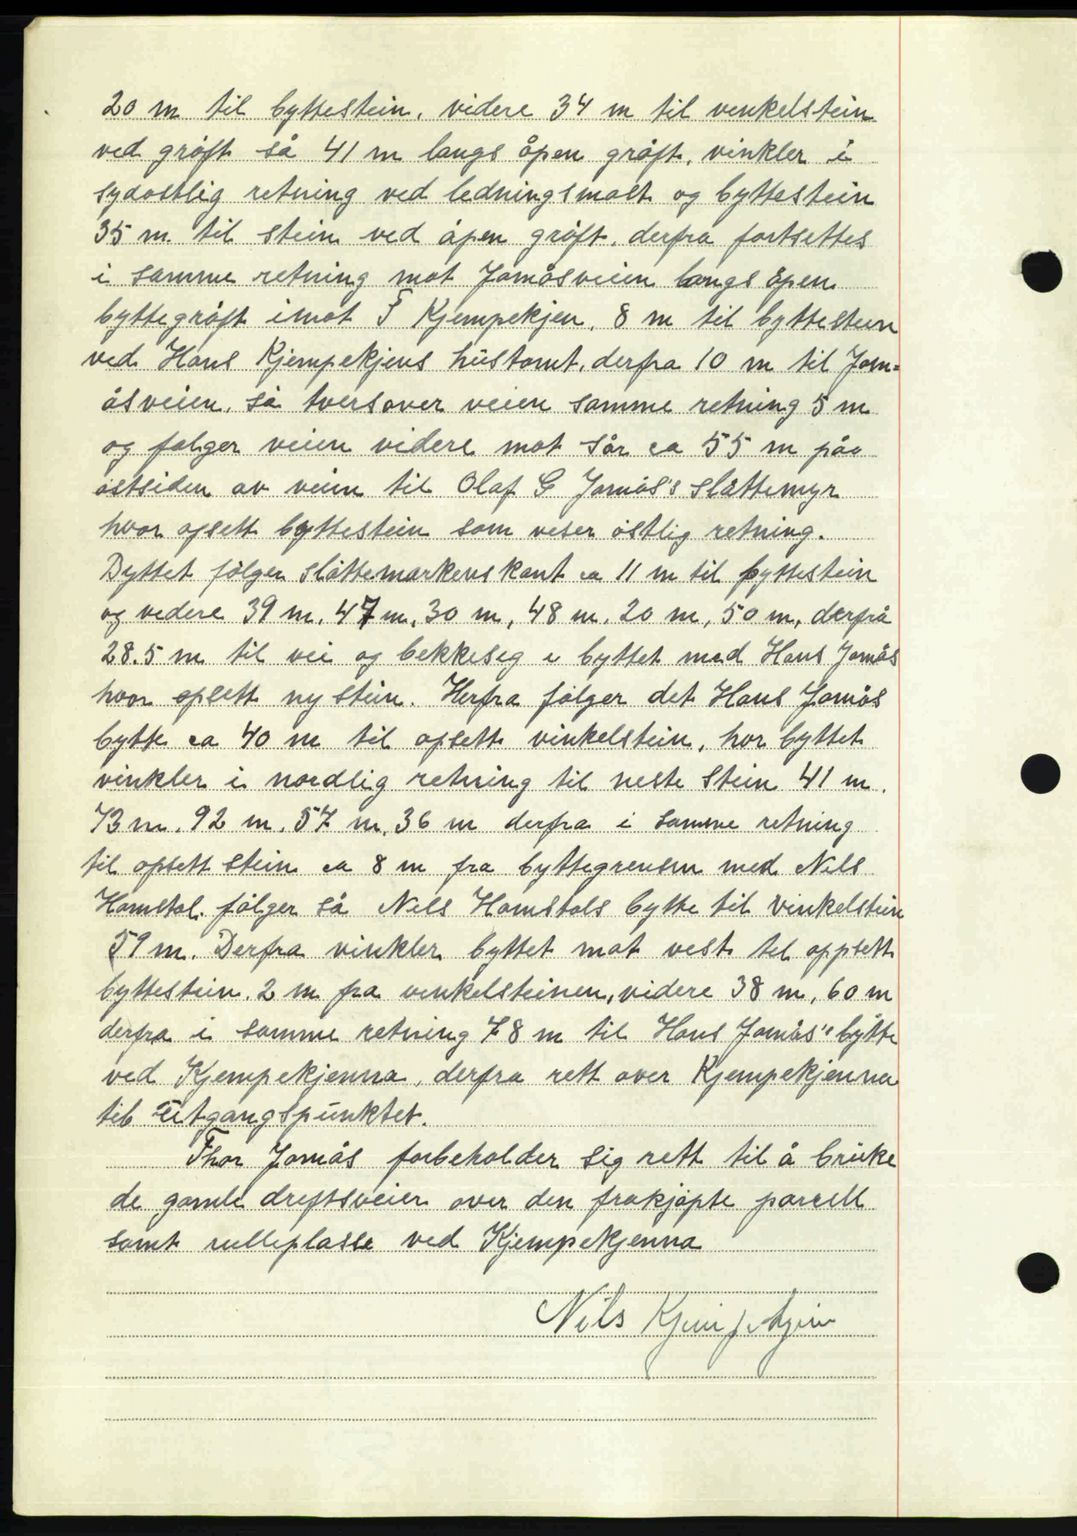 20 m til byttestein, videre 34 m til vinkelstein
ved grøft så 41 m langs åpen grøft, vinkler i
sydøstlig retning ved ledningsmast og byttestein
35 m til stein ved åpen grøft, derfra fortsettes
i samme retning mot Jomåsveien langs åpen
byttegrøft imot F Kjempekjen, 8 m til byttestein
ved Hans Kjempekjens hustomt, derfra 10 m til Jom=
åsveien, så tversover veien samme retning 5 m
og følger veien videre mot sør ca 55 m på
østsiden av veien til Olaf G Jomås's slåttemyr
hvor opsett byttestein som viser østlig retning.
Byttet følger slåttemarkens kant ca 11 m til byttestein
og videre 39 m, 47 m, 30 m, 48 m, 20 m, 50 m, derfra
28.5 m til vei og bekkesig i byttet med Hans Jomås
hvor opsett ny stein. Herfra følger det Hans Jomås
bytte ca 40 m til opsett vinkelstein, hor byttet
vinkler i nordlig retning til neste stein 41 m.
73 m. 92 m. 57 m. 36 m derfra i samme retning
til opsett stein ca 8 m fra byttegrensen med Nils
Homstøl. følger så Nils Homstøls bytte til vinkelstein
59 m. Derfra vinkler byttet mot vest til oppsett
byttestein, 2 m fra vinkelsteinen, videre 38 m, 60 m
derfra i samme retning 78 m til Hans Jomås's bytte
ved Kjempekjenna, derfra rett over Kjempekjenna
til utgangspunktet.
Thor Jomås forbeholder sig rett til å bruke
de gamle driftsveier over den frakjøpte parcell
samt rulleplasse ved Kjempekjenna
Nils Kjempekjen